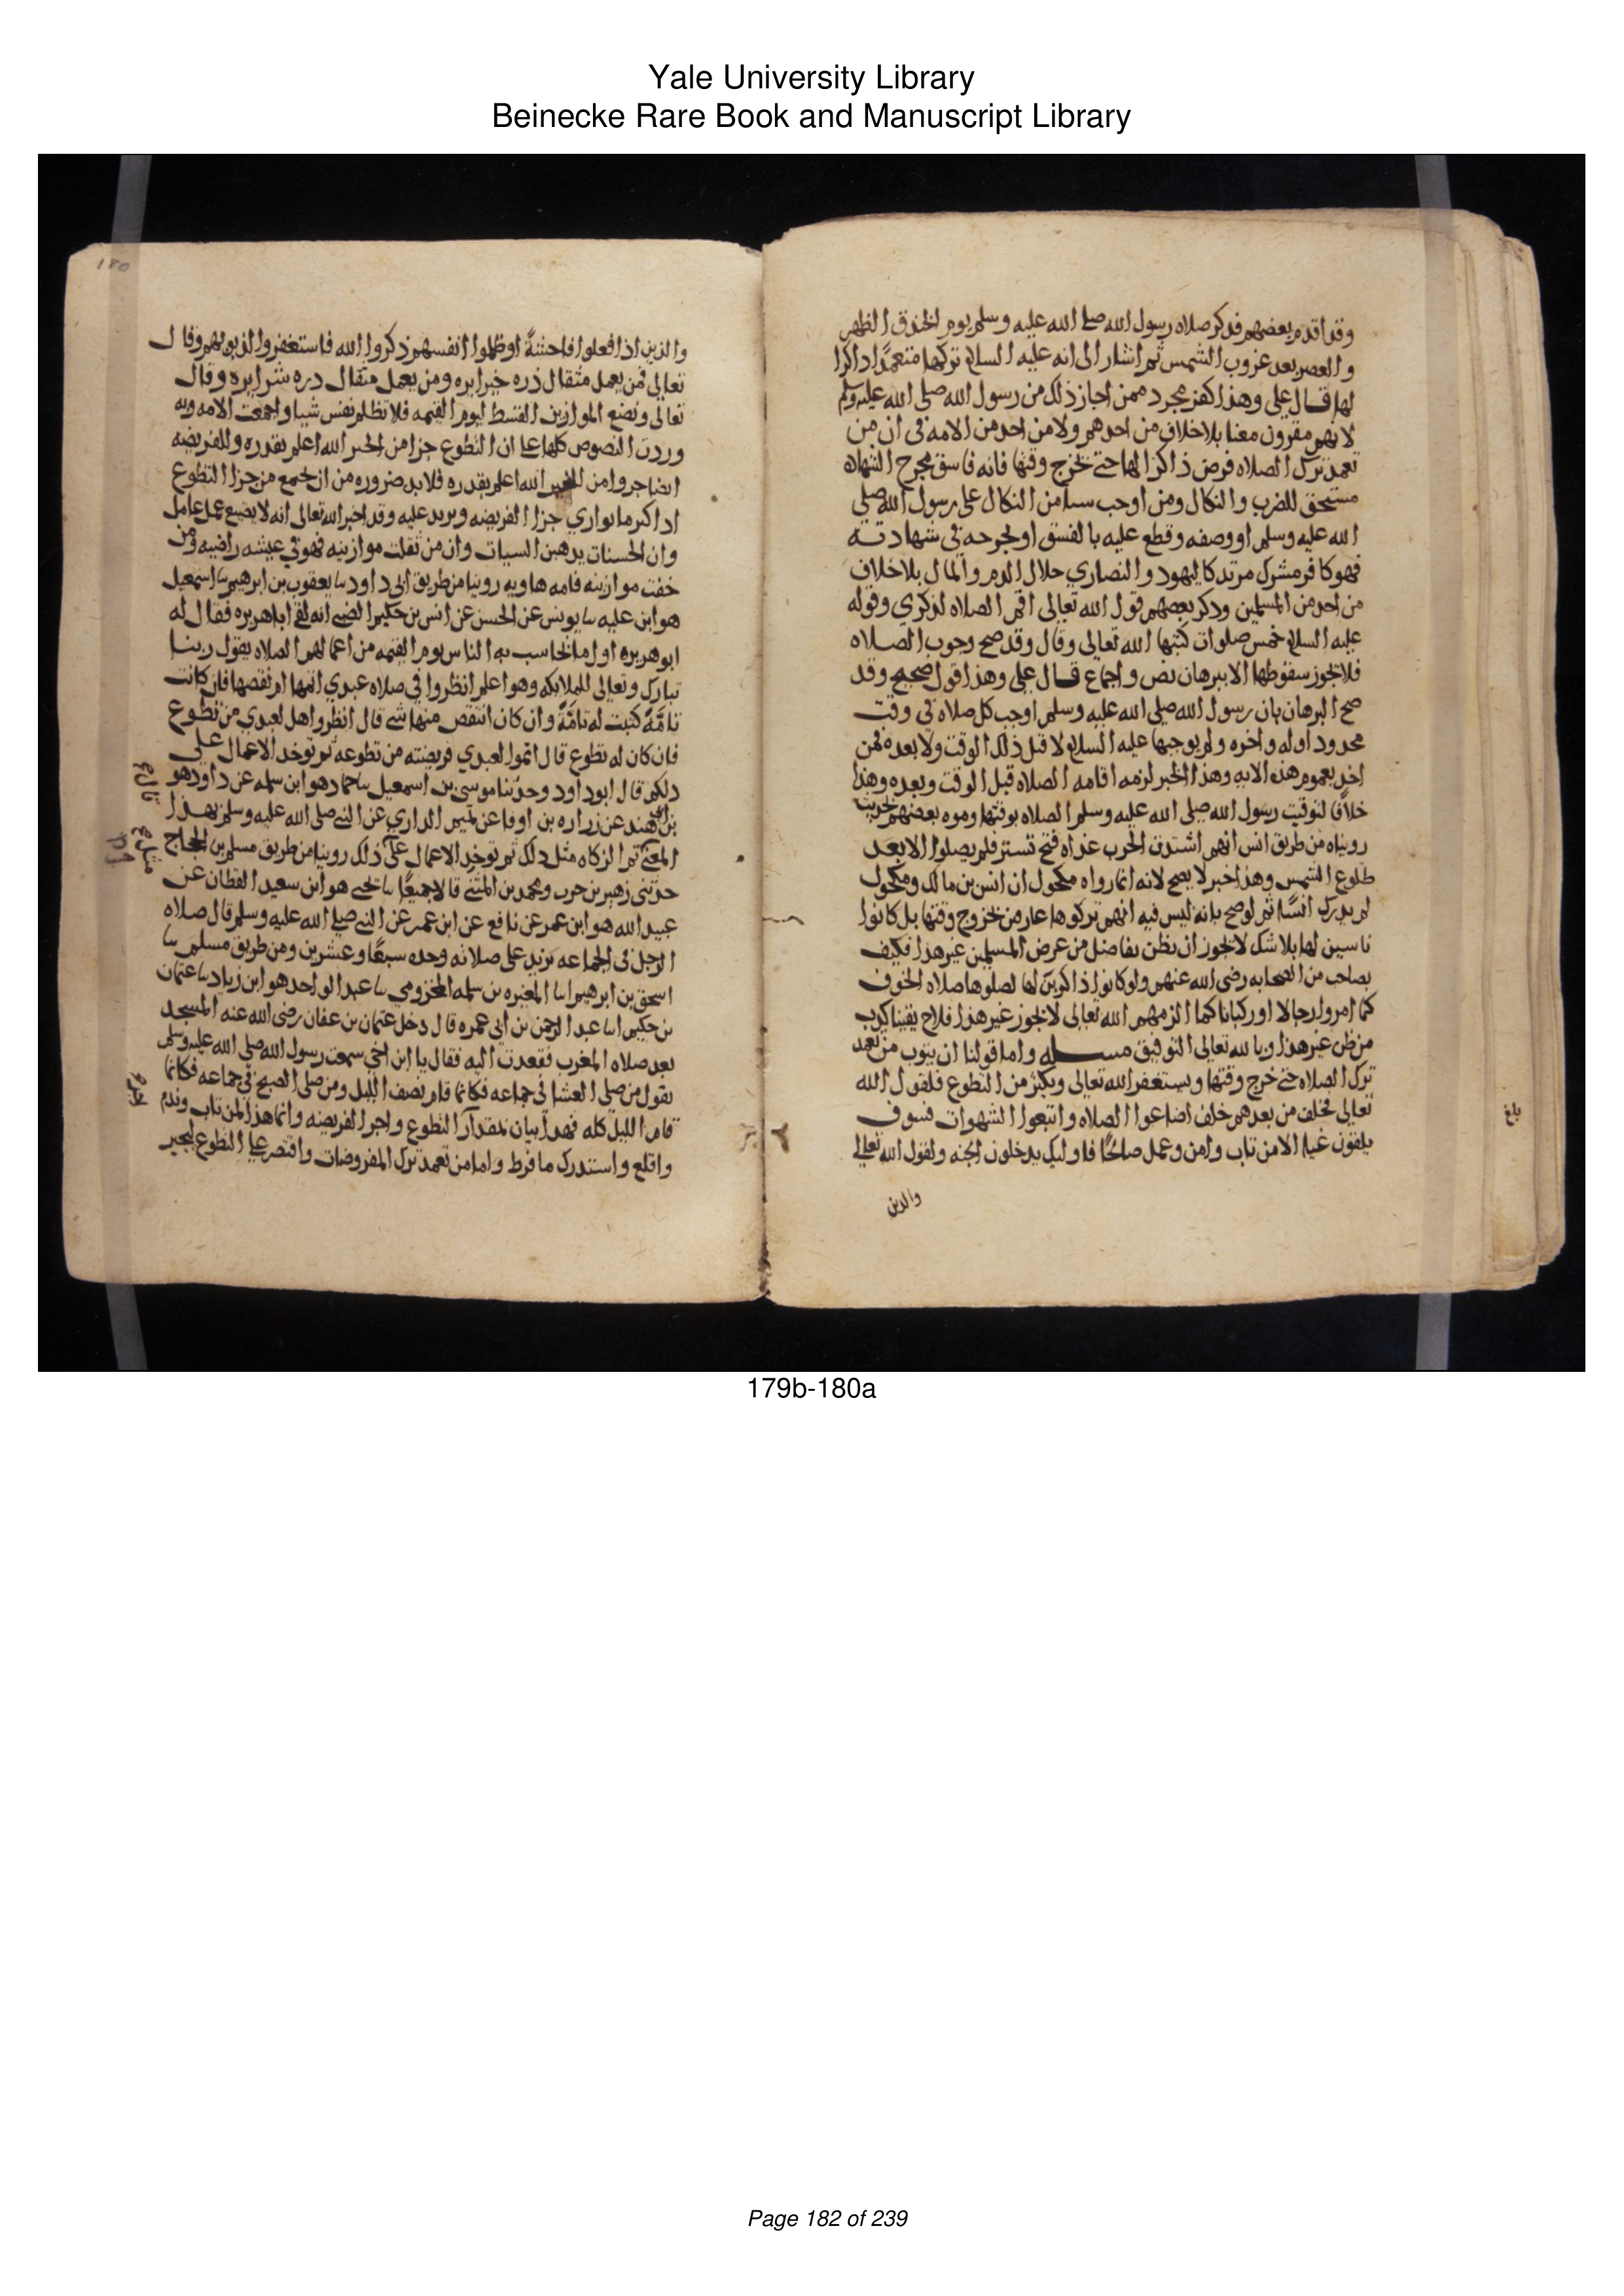 Yale University Library
Beinecke Rare Book and Manuscript Library
وقد اقدم بعضهم فدكر صلاه رسول الله صلى الله عليه وسلم يوم الخندق الظهر
والعصر بعد غروب الشمس ثم اشار الى انه عليه السلام تركها متعمدا داكرا
لها قال على وهذا كفر مجرد ممن اجاز ذلك من رسول الله صلى الله عليه وسلم
لانهم مقرون معنا بلا خلاف من احدهم ولا من احد من الامه فى ان من
تعمد ترك الصلاه فرض ذاكرا لها حتى خرج وقتها فانه فاسق مجرح الشهاده
مستحق للضرب والنكال ومن اوجب سيا من النكال على رسول الله صلى
الله عليه وسلم او وصفه وقطع عليه بالفسق او لجرحه فى شهادته
فهو كافر مشرك مرتد كاليهود والنصاري حلال الدم والمال بلا خلاف
من احد من المسلمين ودكر بعضهم قول الله تعالى اقم الصلاه لذكري وقوله
عليه السلام خمس صلوات كتبها الله تعالى وقال وقد صح وجوب الصلاه
فلا يجوز سقوطها الا ببرهان نص واجماع قال على وهذا قول صحيح وقد
صح البرهان بان رسول الله صلى الله عليه وسلم اوجب كل صلاه فى وقت
محدود اوله واخره ولم يوجبها عليه السلام لا قبل ذلك الوقت ولا بعده فمن
اخذ بعموم هذه الايه وهذا الخبر لزمه اقامه الصلاه قبل الوقت وبعده وهذا
خلافا لتوقيت رسول الله صلى الله عليه وسلم الصلاه بوقتها وموه بعضهم بحديث
رويناه من طريق انس انهم اشتدت الحرب غداه فتح تستر فلم يصلوا الا بعد
طلوع الشمس وهذا خبر لا يصح لانه انما رواه مكحول ان انس بن مالك ومكحول
لم يدرك انسا ثم لو صح بانه ليس فيه انهم تركوها عارمن خروج وقتها بل كانوا
ناسين لها بلا شك لا يجوز ان يظن بفاضل من عرض المسلمين غير هذا فكيف
بصاحب من الصحابه رضى الله عنهم ولو كانوا ذاكرين لها لصلوها صلاه الخوف
كما امروا رجالا او ركبانا كما الزمهم الله تعالى لا يجوز غير هذا فلاح يقينا كذب
من ظن غير هذا وبالله تعالى التوفيق مسله واما قولنا ان يتوب من تعمد
ترك الصلاه حتى خرج وقتها ويستغفر الله تعالى ويكثر من التطوع فلقول الله
تعالى فخلف من بعدهم خلف اضاعوا الصلاه واتبعوا الشهوات فسوف
يلقون غيا الا من تاب وامن وعمل صالحا فاوليك يدخلون الجنه ولقول الله تعالى
والدين
بلغ
180
والذين اذا فعلوا فاحشة او ظلموا انفسهم ذكروا الله فاستغفروا لذنوبهم وقال
تعالى فمن يعمل مثقال ذره خيرا يره ومن يعمل مثقال دره شرا يره وقال
تعالى ونضع الموازين القسط ليوم القيمه فلا تظلم نفس شيا واجمعت الامه وبه
وردت النصوص كلها على ان التطوع جزا من الخير الله اعلم بقدره وللفريضه
ايضا جزوا من الخير الله اعلم بقدره فلا بد ضروره من ان يجمع من جزا التطوع
اذا كثر ما يوازي جزا الفريضه ويزيد عليه وقد اخبر الله تعالى انه لا يضيع عمل عامل
وان الحسنات يدهبن السيات وان من ثقلت موازينه فهو في عيشه راضيه ومن
خفت موازينه فامه هاويه روينا من طريق ابى داود نا يعقوب بن ابرهيم نا اسمعيل
هو ابن عليه نا يونس عن الحسن عن انس بن حكيم الضبى انه لقى اباهريره فقال له
ابو هريره اول ما يحاسب به الناس يوم القيمه من اعمالهم الصلاه يقول ربنا
تبارك وتعالى للملايكه وهو اعلم انظروا في صلاه عبدي اتمها ام نقصها فان كانت
تامة كتبت له تامة وان كان انتقص منها شى قال انظروا هل لعبدي من تطوع
فان كان له تطوع قال اتموا لعبدي فريضته من تطوعه ثم توخد الاعمال على
دلكم قال ابو داود وحدثنا موسى بن اسمعيل نا حماد هو ابن سلمه عن داود هو
بن ابى هند عن زراره بن اوفا عن تميم الداري عن النبى صلى الله عليه وسلم بهذا
المعنى ثم الزكاه مثل دلك ثم توخد الاعمال على ذلك روينا من طريق مسلم بن الحجاج
حدثنى زهير بن حرب ومحمد بن المثنى قالا جميعا نا يحيى هو ابن سعيد القطان عن
عبيد الله هو ابن عمر عن نافع عن ابن عمر عن النبى صلى الله عليه وسلم قال صلاه
الرجل فى الجماعه تزيد على صلاته وحده سبعا وعشرين ومن طريق مسلم نا
اسحق بن ابرهيم انا المغيره بن سلمه المخزومي نا عبد الواحد هو ابن زياد نا عثمان
بن حكيم انا عبد الرحمن بن ابي عمره قال دخل عثمان بن عفان رضى الله عنه المسجد
بعد صلاه المغرب فقعدت اليه فقال يا ابن اخى سمعت رسول الله صلى الله عليه وسلم
يقول من صلى العشا فى جماعه فكانما قام نصف الليل ومن صلى الصبح فى جماعه فكانما
قام الليل كله فهدا بيان لمقدار التطوع واجر الفريضه وانما هذا لمن تاب وندم
واقلع واستدرك ما فرط واما من تعمد ترك المفروضات واقتصر على التطوع ليجبر
179b-180a
Page 182 of 239